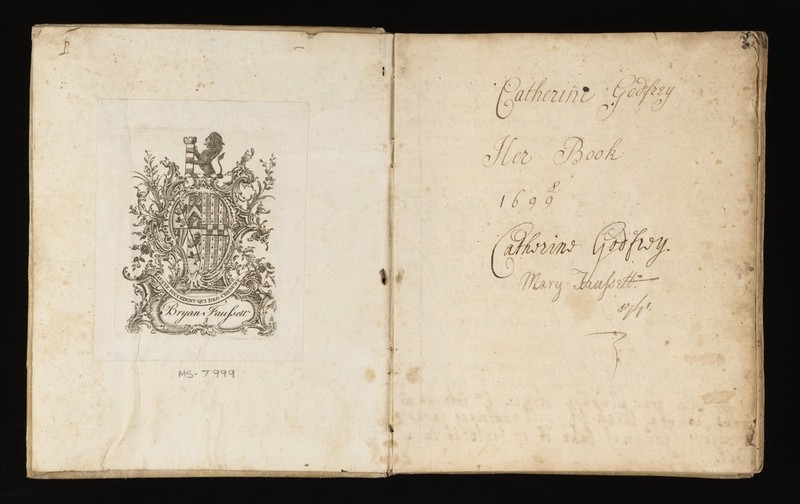 QUI DEO
Bryan Faussett
MS. 7999
Catherine Godfrey
Her Book
8
1699
Catherine Godfrey.
Mary Faussett